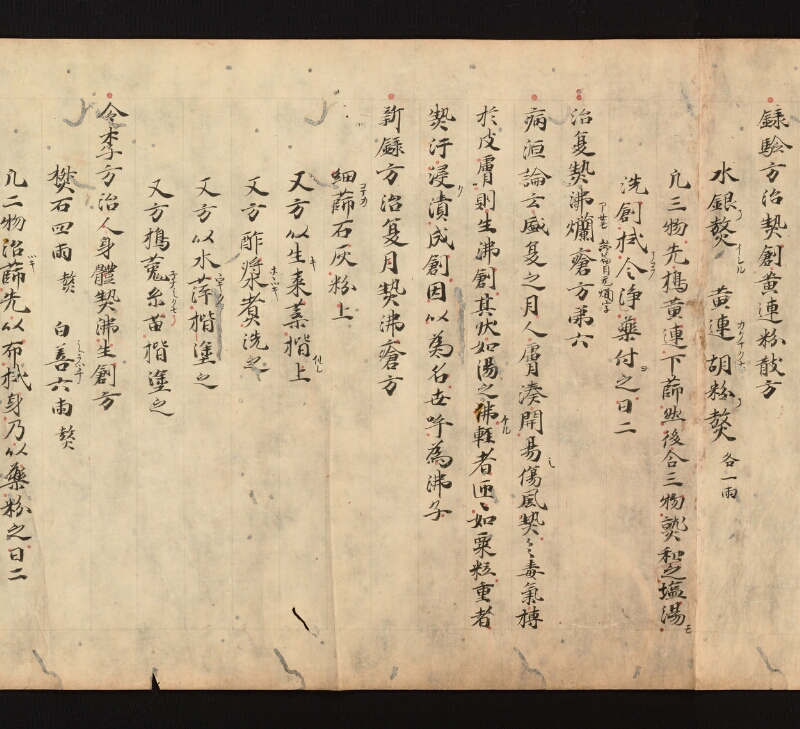 録驗方治熱創黄連粉散方
水銀熬 黄連 胡粉熬 各一兩
凡三物先搗黄連下篩然後合三物熟和之塩湯
洗創拭令浄藥付之日二
治夏熱沸爛瘡方第六
病源論云盛夏之月人膚湊開易傷風熱〻毒氣搏
於皮膚則生沸創其状如湯之沸輕者匝〻如粟粒重者
熱汗浸漬成創因以為名世呼為沸子
新録方治夏月熱沸瘡方
細篩石灰粉上
又方以生棗葉揩上
又方酢漿煮洗之
又方以水萍揩塗之
又方搗菟糸苗揩塗之
令李方治人身體熱沸生創方
樊石四兩 熬 白善六兩 熬
凡二物治篩先以布拭身乃以藥粉之日二